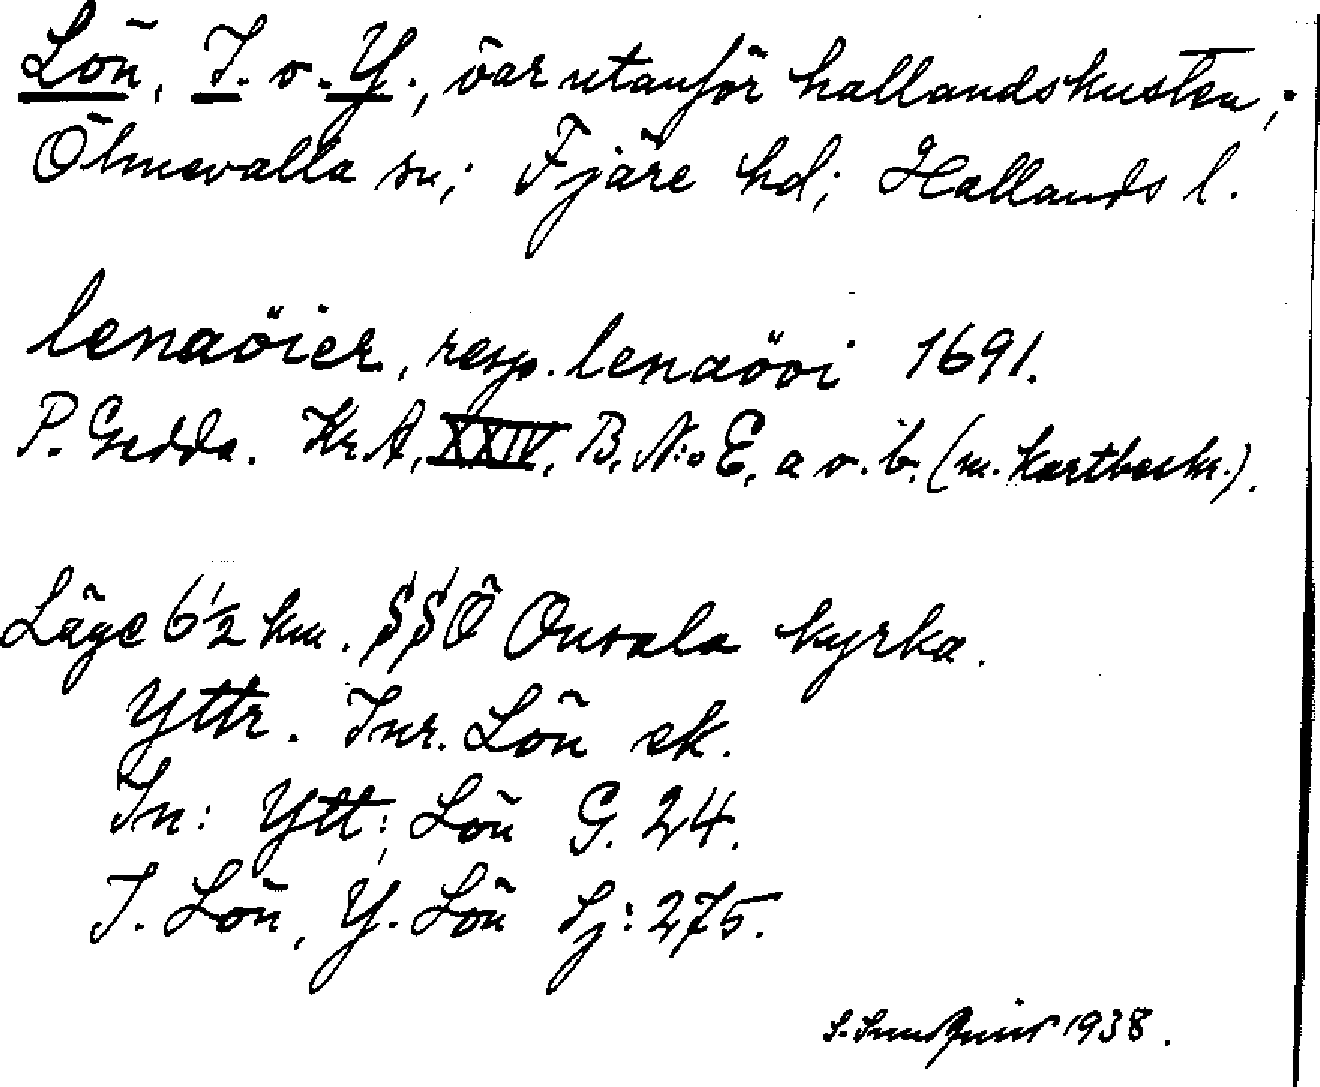 Lön, I. o. Y., öar utanför hallandskusten;
Ölmevalla sn; Fjäre hd; Hallands l.
lenaöier, resp. lenaöoi 1691.
P. Gedda. Kr A, XXIV, B. N:o E, a o. b. (m. kartbeskr.).
Läge 6½ km. SSÖ Onsala kyrka.
Yttr. Inr. Lön ek.
In: Ytt: Lön G. 24.
I. Lön, Y. Lön Sj: 275.
S. Sundquist 1938.